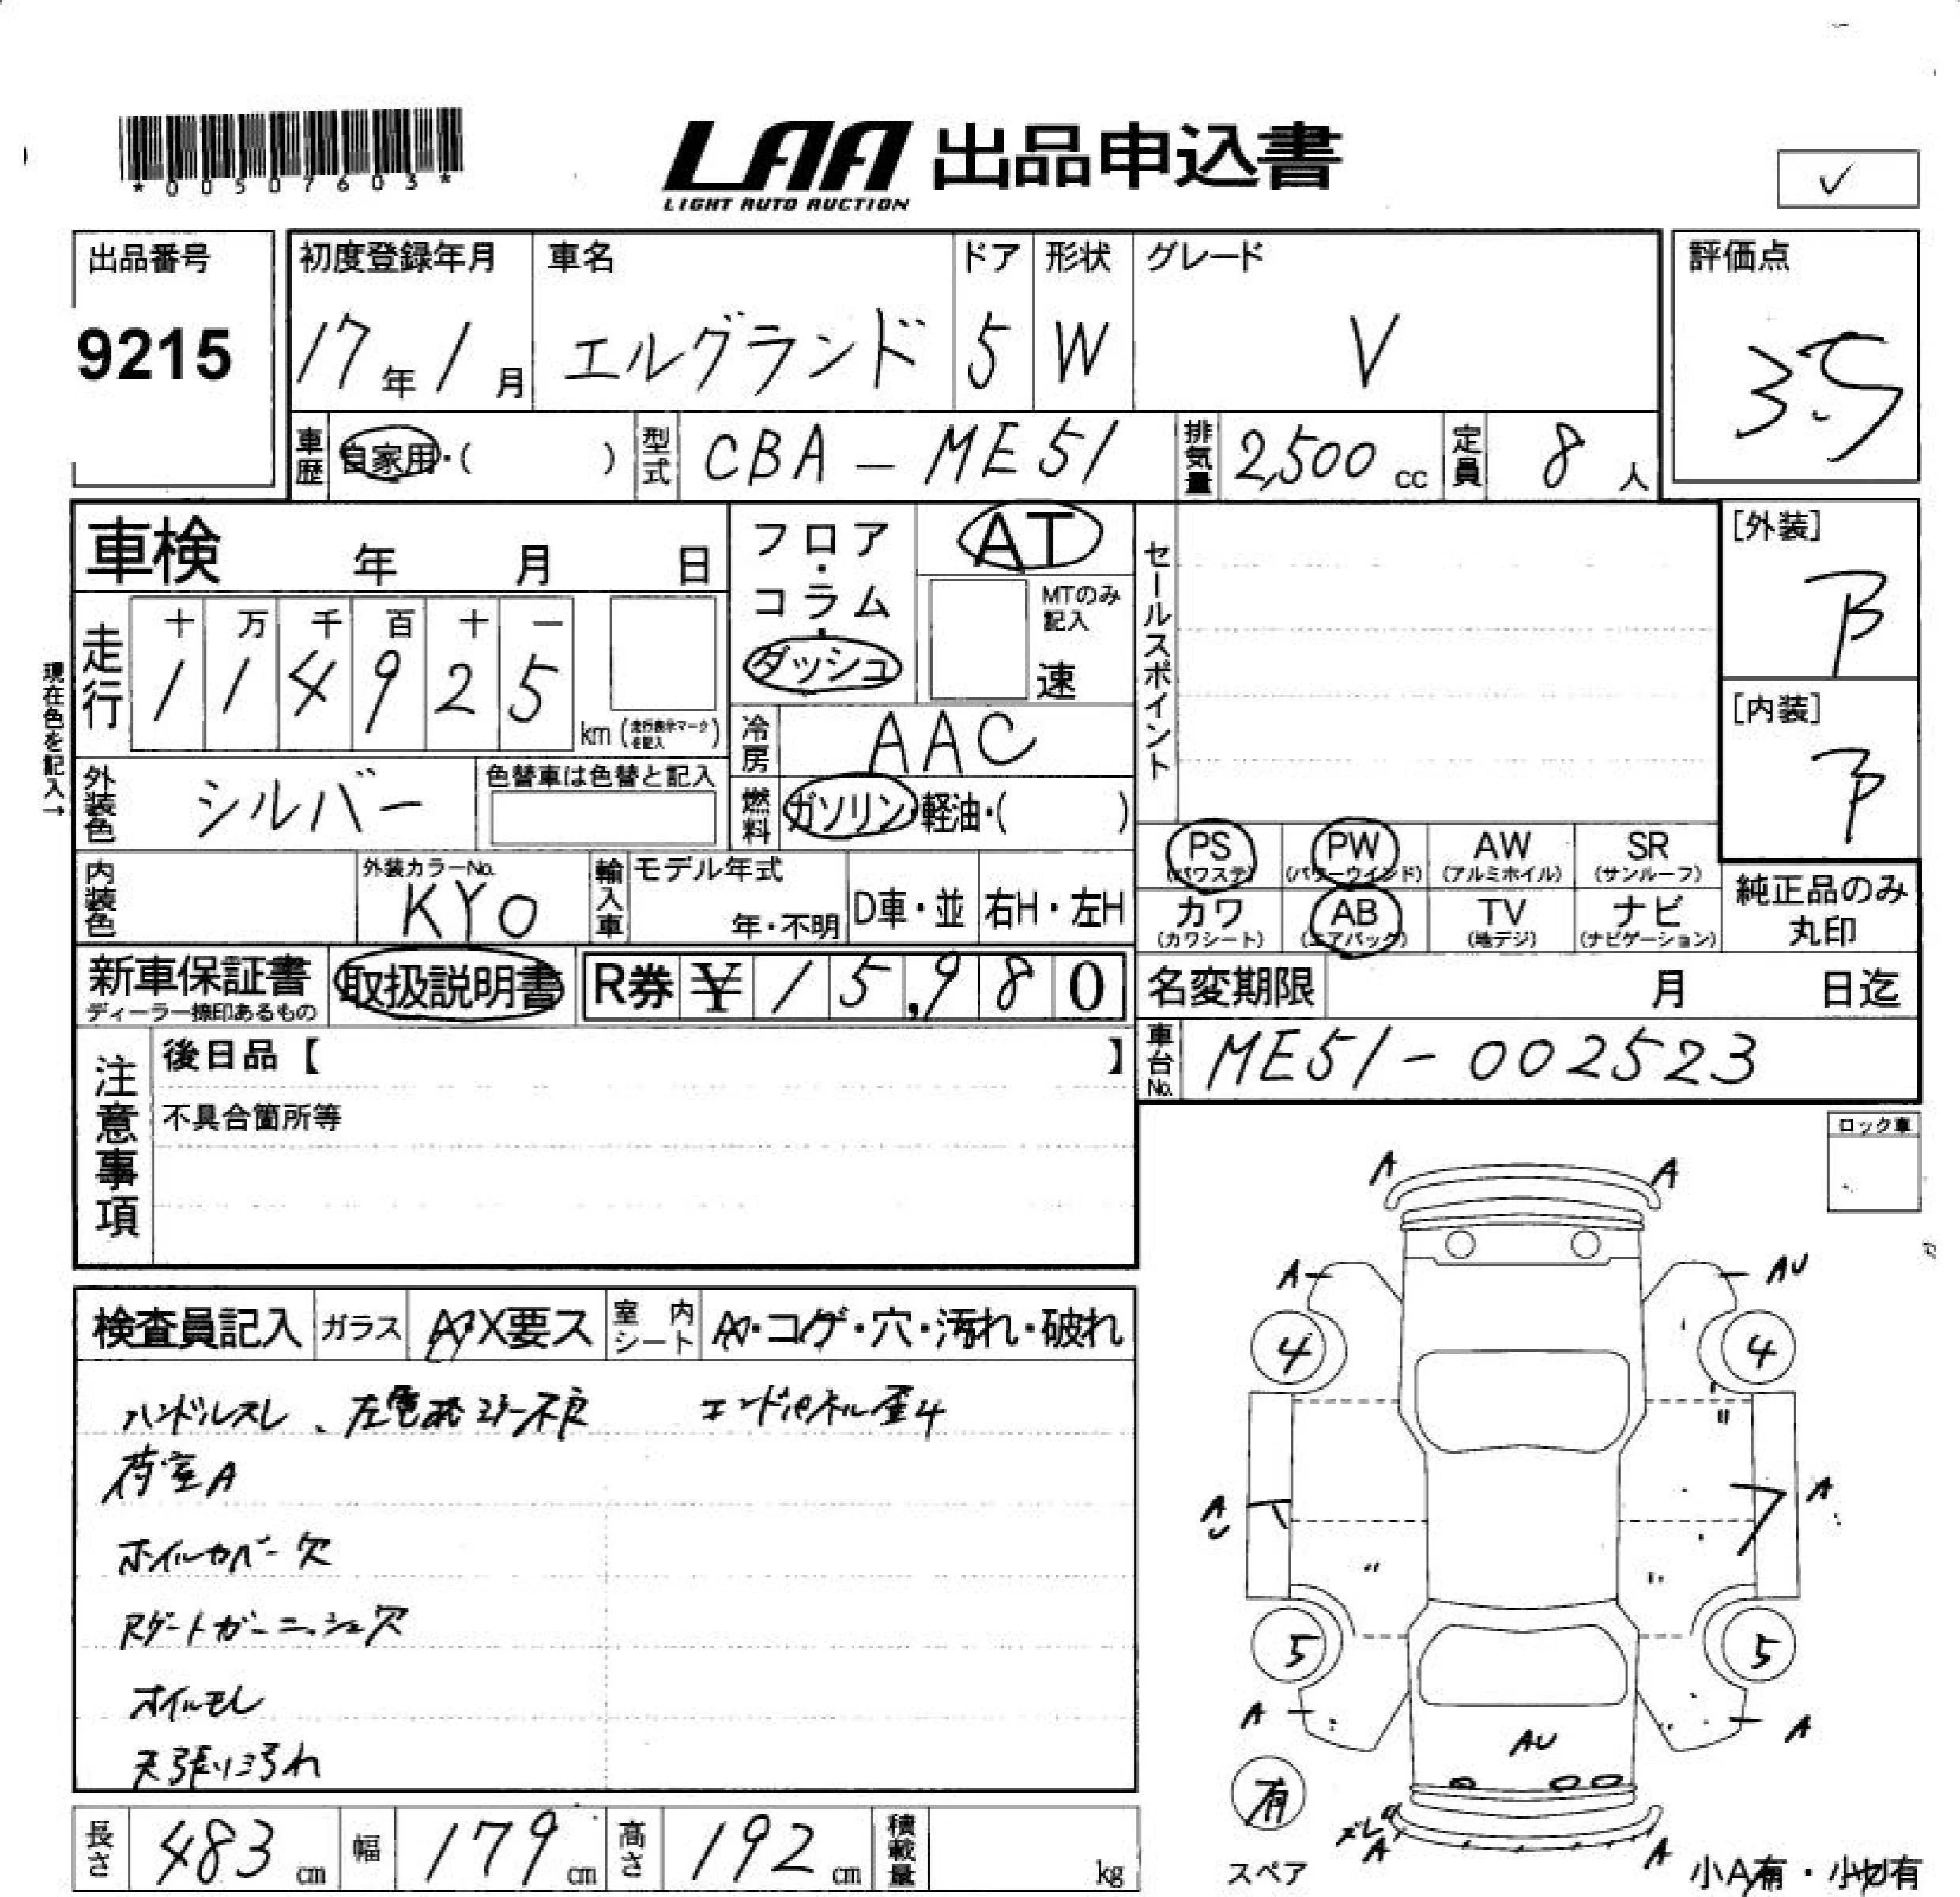 *00507603*
LAA 出品申込書
LIGHT AUTO AUCTION
✓
出品番号
9215
初度登録年月 車名 ドア 形状 グレード
17年1月 エルグランド 5 W V
評価点
3.5
車歴 自家用・( ) 型式 CBA-ME51 排気量 2,500cc 定員 8人
車検 年 月 日
フロア・コラム・ダッシュ
AT
MTのみ記入
速
セールスポイント
[外装]
B
[内装]
B
現在色を記入→
走行 十 万 千 百 十 一
1 1 4 9 2 5 km (走行表示マークを記入)
冷房 AAC
外装色 シルバー 色替車は色替と記入
燃料 ガソリン・軽油・( )
PS (パワステ) PW (パワーウインド) AW (アルミホイル) SR (サンルーフ)
カワ (カワシート) AB (エアバック) TV (地デジ) ナビ (ナビゲーション)
純正品のみ丸印
内装色 外装カラーNo. KY0 輸入車 モデル年式 年・不明 D車・並 右H・左H
新車保証書 ディーラー捺印あるもの 取扱説明書 R券 ¥ 15,980
名変期限 月 日迄
車台No. ME51-002523
注意事項
後日品【 】
不具合箇所等
ロック車
検査員記入 ガラス A・X要ス 室内シート A・コゲ・穴・汚れ・破れ
ハンドルスレ、左電格ミラー不良 エンドパネル歪4
荷室A
ホイルカバー欠
Rゲートガーニッシュ欠
オイルモレ
天張り汚れ
A A
A AU
4 4
A A
U
5 5
A A
AU
有
スペア
ズレ
A A
小A有・小凹有
長さ 483cm 幅 179cm 高さ 192cm 積載量 kg